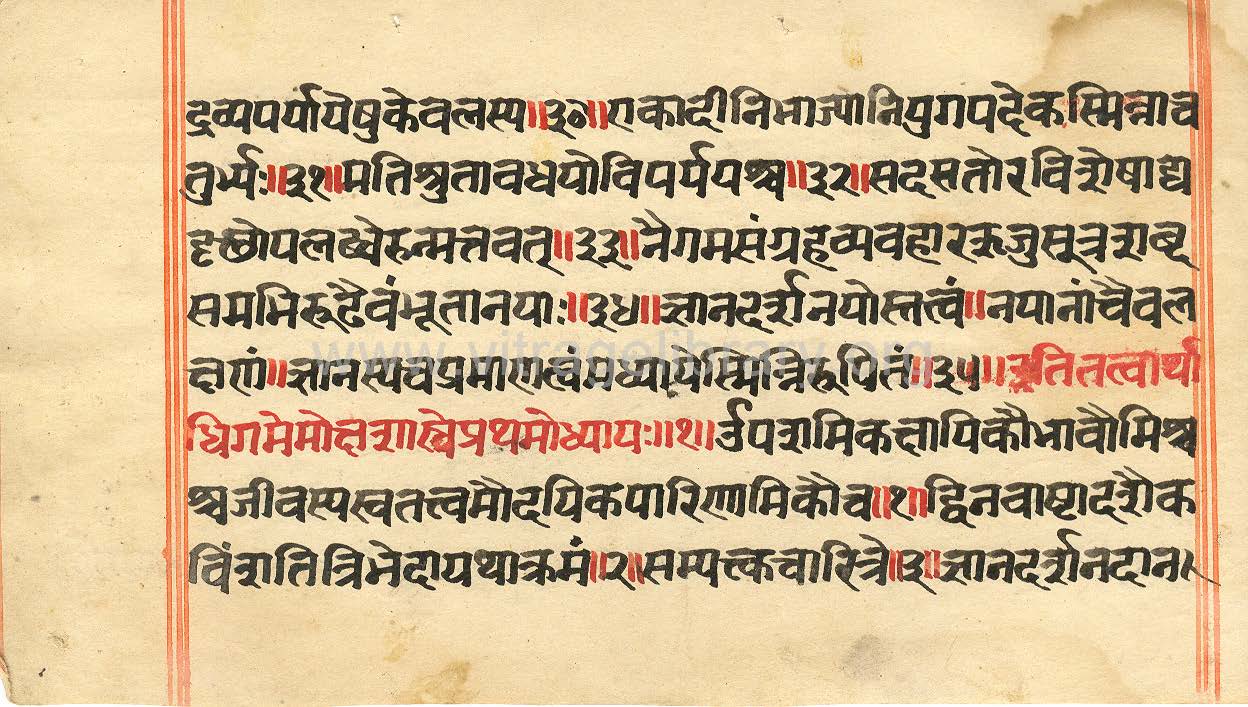 द्रव्यपर्यायेषुकेवलस्य॥३०॥एकादीनिभाज्यानियुगपदेकस्मिन्नाच
तुर्भ्यः॥३१॥मतिश्रुतावधयोविपर्ययश्च॥३२॥सदसतोरविशेषाद्य
दृच्छोपलब्धेरुन्मत्तवत्॥३३॥नैगमसंग्रहव्यवहारऋजुसूत्रशब्द
समभिरूढैवंभूतानयाः॥३४॥ज्ञानदर्शनयोस्तत्त्वं॥नयानांचैवल
क्षणं॥ज्ञानस्यचप्रमाणत्वंमध्यायेस्मिन्निरूपितं॥३५॥इतितत्वार्था
धिगमेमोक्षशास्त्रेप्रथमोध्यायः॥१॥र्उपशमिकक्षायिकौभावौमिश्र
श्चजीवस्यस्वतत्त्वमौदयिकपारिणामिकौच॥१॥द्विनवाष्टादशैक
विंशतित्रिभेदायथाक्रमं॥२॥सम्यत्त्कचारित्रे॥३॥ज्ञानदर्शनदान
www.vitragelibrary.org